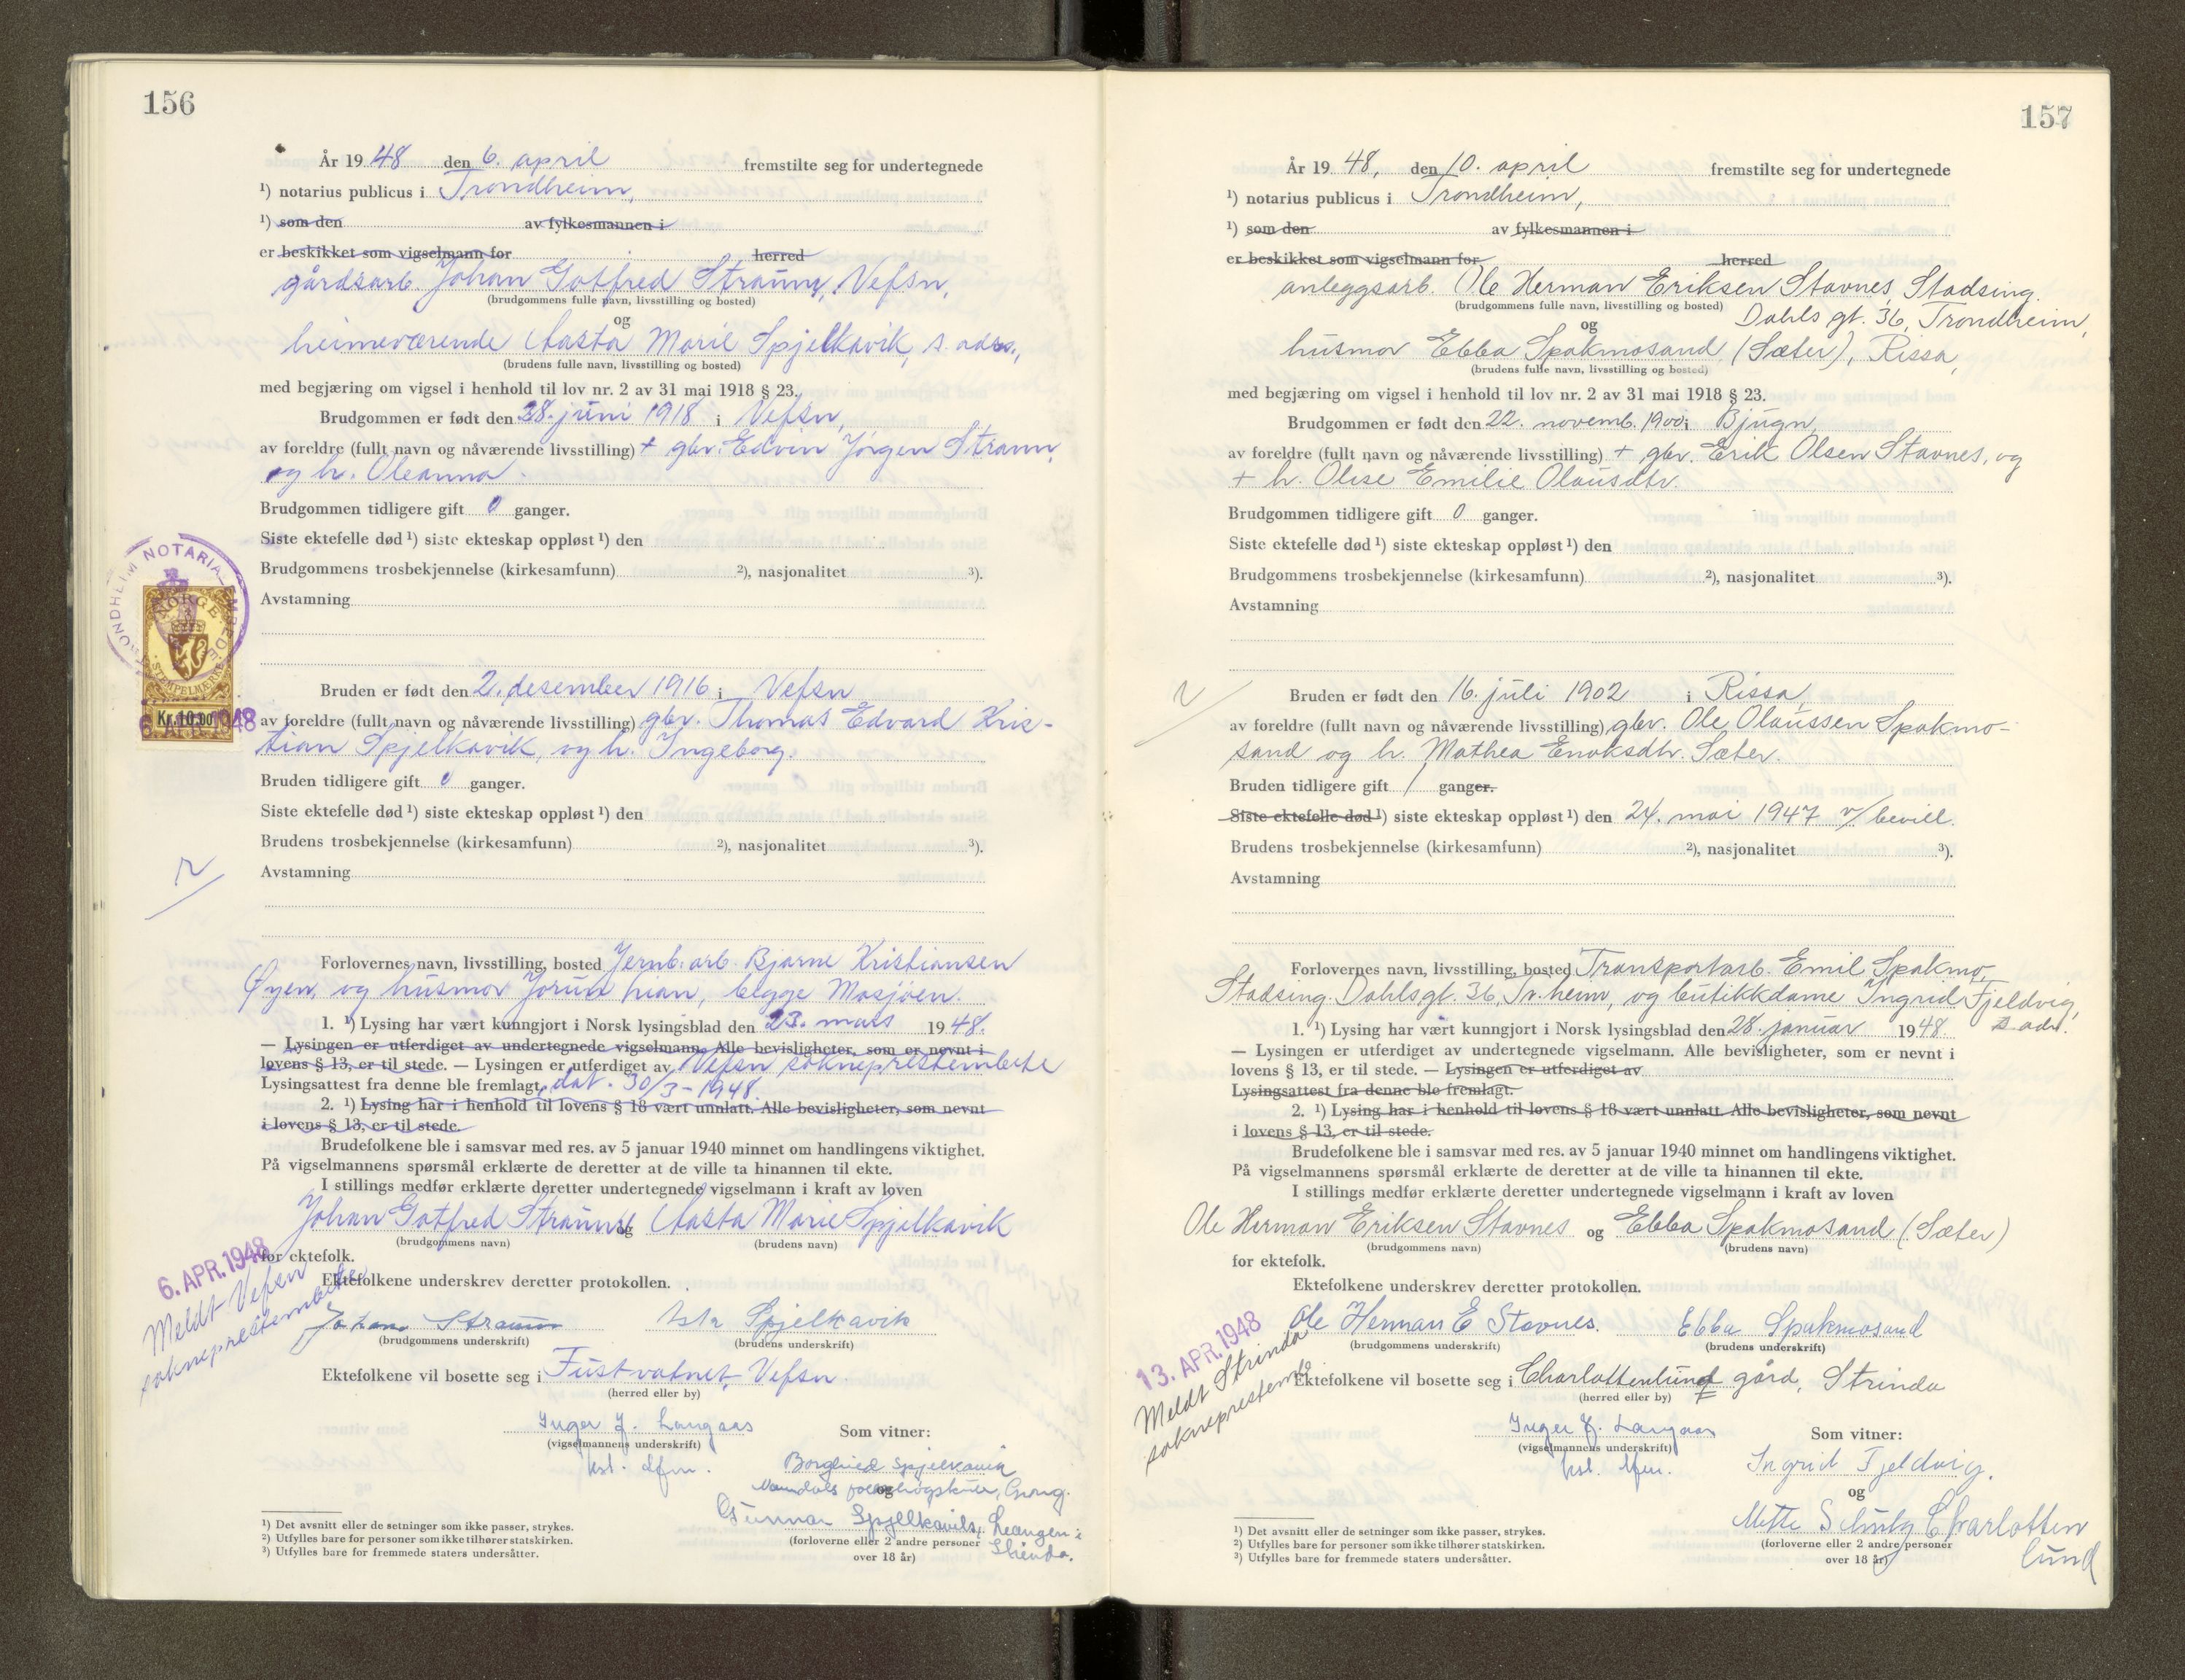 156
År 1948 den 6. april fremstilte seg for undertegnede
¹) notarius publicus i Trondheim,
¹) som den av fylkesmannen i
er beskikket som vigselmann for herred
gårdsarb. Johan Gotfred Straum, Vefsn,
(brudgommens fulle navn, livsstilling og bosted)
og
heimeværende Aasta Marie Spjelkavik, s. adrs.,
(brudens fulle navn, livsstilling og bosted)
med begjæring om vigsel i henhold til lov nr. 2 av 31 mai 1918 § 23.
Brudgommen er født den 28. juni 1918 i Vefsn,
av foreldre (fullt navn og nåværende livsstilling) + gbr. Edvin Jörgen Straum,
og h. Oleanna.
Brudgommen tidligere gift 0 ganger.
Siste ektefelle død ¹) siste ekteskap oppløst ¹) den
Brudgommens trosbekjennelse (kirkesamfunn) ²), nasjonalitet ³).
Avstamning
TRONDHEIM NOTARIALEMBEDE
NORGE
STEMPELMERKE
Kr. 10,00
6. APR. 1948
Bruden er født den 2. desember 1916 i Vefsn
av foreldre (fullt navn og nåværende livsstilling) gbr. Thomas Edvard Kris-
tian Spjelkavik, og h. Ingeborg.
Bruden tidligere gift 0 ganger.
Siste ektefelle død ¹) siste ekteskap oppløst ¹) den
Brudens trosbekjennelse (kirkesamfunn) ²), nasjonalitet ³).
Avstamning
Forlovernes navn, livsstilling, bosted Jernb.arb. Bjarne Kristiansen
Öyen, og husmor Jorun han, begge Mosjöen.
1. ¹) Lysing har vært kunngjort i Norsk lysingsblad den 23. mars 1948.
— Lysingen er utferdiget av undertegnede vigselmann. Alle bevisligheter, som er nevnt i
lovens § 13, er til stede. — Lysingen er utferdiget av Vefsn sokneprestembete
Lysingsattest fra denne ble fremlagt, dat. 30/3-1948.
2. ¹) Lysing har i henhold til lovens § 18 vært unnlatt. Alle bevisligheter, som nevnt
i lovens § 13, er til stede.
Brudefolkene ble i samsvar med res. av 5 januar 1940 minnet om handlingens viktighet.
På vigselmannens spørsmål erklærte de deretter at de ville ta hinannen til ekte.
I stillings medfør erklærte deretter undertegnede vigselmann i kraft av loven
Johan Gotfred Straum og Aasta Marie Spjelkavik
(brudgommens navn) (brudens navn)
for ektefolk.
6. APR. 1948
Meldt Vefsn
sokneprestembete
Ektefolkene underskrev deretter protokollen.
Johan Straum Asta Spjelkavik
(brudgommens underskrift) (brudens underskrift)
Ektefolkene vil bosette seg i Fustvatnet, Vefsn.
(herred eller by)
Inger J. Langaas
(vigselmannens underskrift)
kst. dfm.
Som vitner:
Borghild Spjelkavik
Namdals folkehögskule, Grong.
og
Gunnar Spjelkavik, Leangen i
Strinda.
(forloverne eller 2 andre personer
over 18 år)
¹) Det avsnitt eller de setninger som ikke passer, strykes.
²) Utfylles bare for personer som ikke tilhører statskirken.
³) Utfylles bare for fremmede staters undersåtter.
157
År 1948, den 10. april fremstilte seg for undertegnede
¹) notarius publicus i Trondheim,
¹) som den av fylkesmannen i
er beskikket som vigselmann for herred
anleggsarb. Ole Herman Eriksen Stavnes, Stadsing.
(brudgommens fulle navn, livsstilling og bosted)
Dahls gt. 36, Trondheim,
og
husmor Ebba Spakmosand (Sæter), Rissa,
(brudens fulle navn, livsstilling og bosted)
med begjæring om vigsel i henhold til lov nr. 2 av 31 mai 1918 § 23.
Brudgommen er født den 22. novemb. 1900 i Bjugn,
av foreldre (fullt navn og nåværende livsstilling) + gbr. Erik Olsen Stavnes, og
+ h. Olise Emilie Olausdtr.
Brudgommen tidligere gift 0 ganger.
Siste ektefelle død ¹) siste ekteskap oppløst ¹) den
Brudgommens trosbekjennelse (kirkesamfunn) ²), nasjonalitet ³).
Avstamning
Bruden er født den 16. juli 1902 i Rissa,
av foreldre (fullt navn og nåværende livsstilling) gbr. Ole Olaussen Spakmo-
sand og h. Mathea Enoksdtr. Sæter.
Bruden tidligere gift 1 ganger.
Siste ektefelle død ¹) siste ekteskap oppløst ¹) den 24. mai 1947 v/ bevill.
Brudens trosbekjennelse (kirkesamfunn) ²), nasjonalitet ³).
Avstamning
Forlovernes navn, livsstilling, bosted Transportarb. Emil Spakmo,
Stadsing. Dahlsgt. 36, Tr.heim, og butikkdame Ingrid Fjeldvig,
s. adr.
1. ¹) Lysing har vært kunngjort i Norsk lysingsblad den 28. januar 1948.
— Lysingen er utferdiget av undertegnede vigselmann. Alle bevisligheter, som er nevnt i
lovens § 13, er til stede. — Lysingen er utferdiget av
Lysingsattest fra denne ble fremlagt.
2. ¹) Lysing har i henhold til lovens § 18 vært unnlatt. Alle bevisligheter, som nevnt
i lovens § 13, er til stede.
Brudefolkene ble i samsvar med res. av 5 januar 1940 minnet om handlingens viktighet.
På vigselmannens spørsmål erklærte de deretter at de ville ta hinannen til ekte.
I stillings medfør erklærte deretter undertegnede vigselmann i kraft av loven
Ole Herman Eriksen Stavnes og Ebba Spakmosand (Sæter)
(brudgommens navn) (brudens navn)
for ektefolk.
Ektefolkene underskrev deretter protokollen.
13. APR. 1948
Meldt Strinda
sokneprestemb.
Ole Herman E Stavnes. Ebba Spakmosand
(brudgommens underskrift) (brudens underskrift)
Ektefolkene vil bosette seg i Charlottenlund gård, Strinda
(herred eller by)
Inger J. Langaas
(vigselmannens underskrift)
kst. dfm.
Som vitner:
Ingrid Fjeldvig.
og
Mette Schulz Charlotten
lund
(forloverne eller 2 andre personer
over 18 år)
¹) Det avsnitt eller de setninger som ikke passer, strykes.
²) Utfylles bare for personer som ikke tilhører statskirken.
³) Utfylles bare for fremmede staters undersåtter.